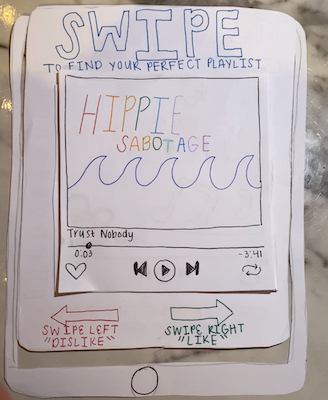 SWIPE
TO FIND YOUR PERFECT PLAYLIST
HIPPIE
SABOTAGE
Trust Nobody
0:03 -3:41
SWIPE LEFT SWIPE RIGHT
"DISLIKE" "LIKE"